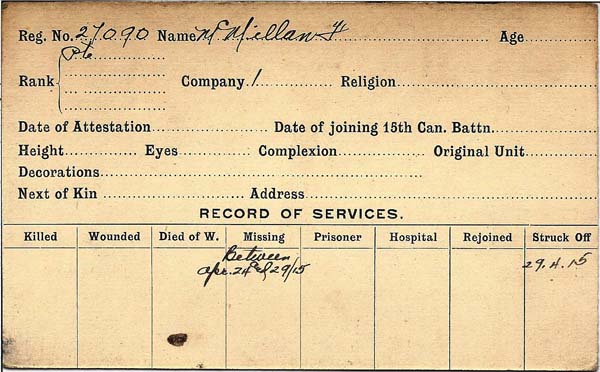 Reg. No. 27090 Name McMillan F Age
Pte
Rank Company 1 Religion
Date of Attestation Date of joining 15th Can. Battn.
Height Eyes Complexion Original Unit
Decorations
Next of Kin Address
RECORD OF SERVICES.
Killed Wounded Died of W. Missing Prisoner Hospital Rejoined Struck Off
Between 29.4.15
Apr. 24 & 29/15